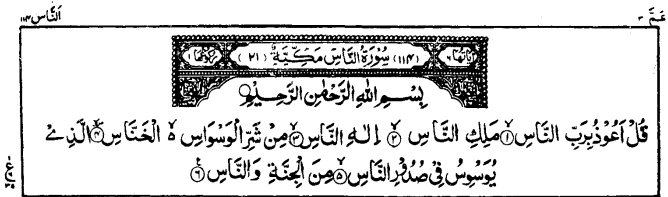 عمّ ٣٠ الناس ١١٤
اٰيَاتُهَا ٦ (١١٤) سُوْرَةُ النَّاسِ مَكِّيَّةٌ (٢١) رُكُوْعُهَا ١
بِسْمِ اللهِ الرَّحْمٰنِ الرَّحِيْمِ
قُلْ اَعُوْذُ بِرَبِّ النَّاسِ ۱ مَلِكِ النَّاسِ ۲ اِلٰهِ النَّاسِ ۳ مِنْ شَرِّ الْوَسْوَاسِ ەۙ الْخَنَّاسِ ۴ الَّذِيْ
يُوَسْوِسُ فِيْ صُدُوْرِ النَّاسِ ۵ مِنَ الْجِنَّةِ وَالنَّاسِ ۶